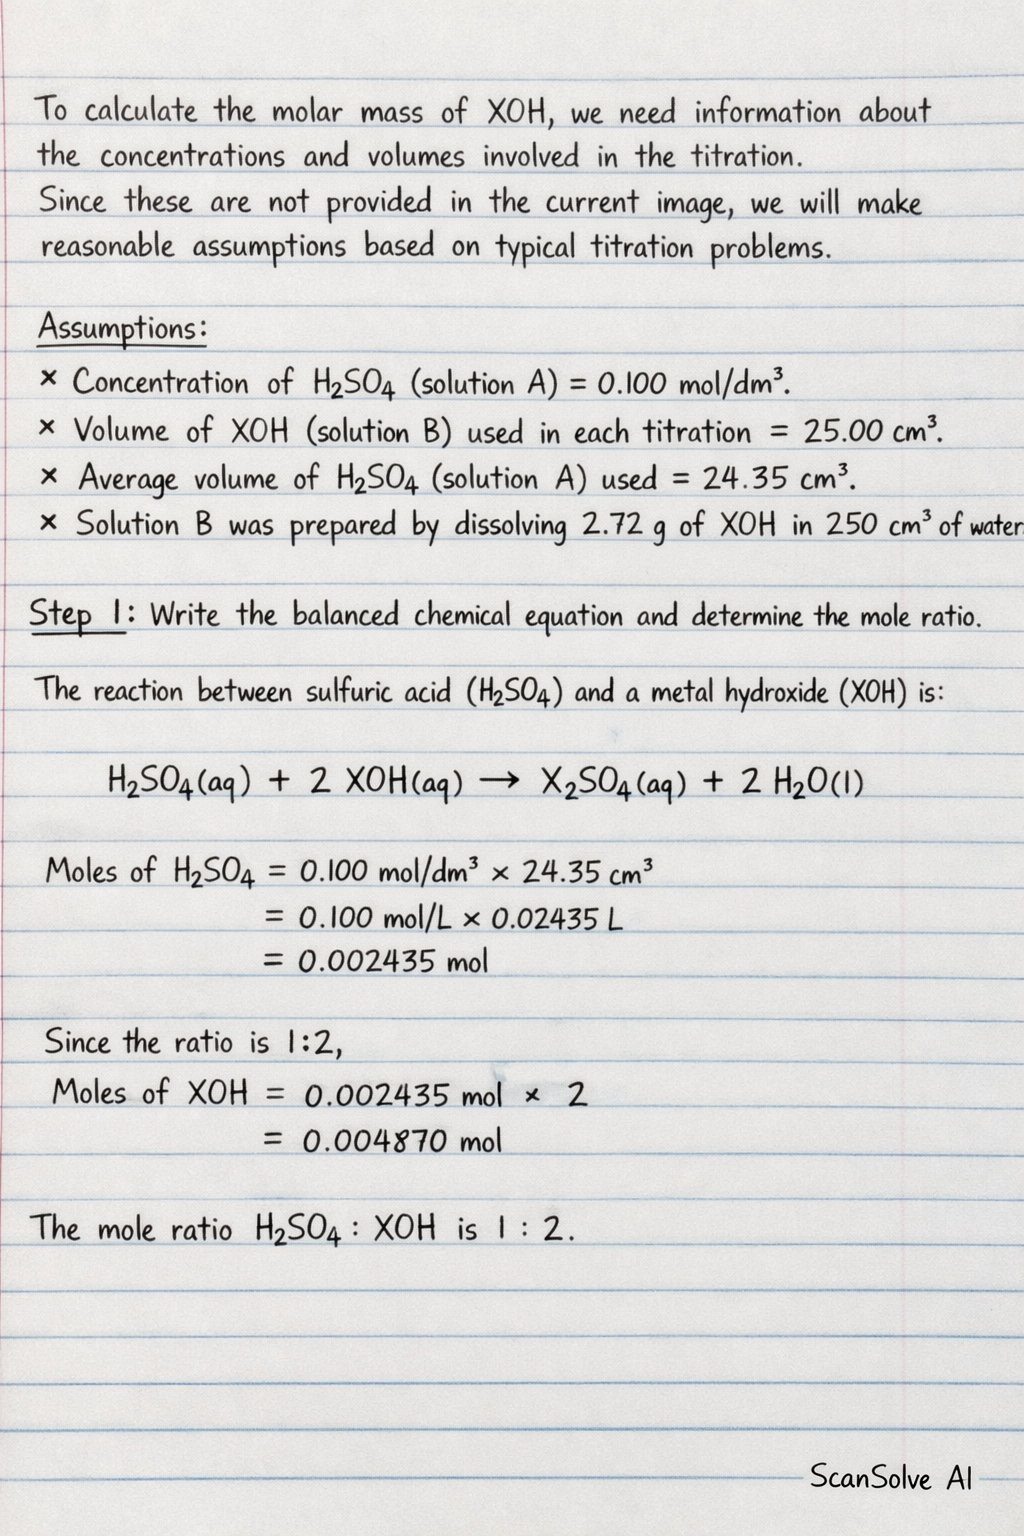 To calculate the molar mass of XOH, we need information about
the concentrations and volumes involved in the titration.
Since these are not provided in the current image, we will make
reasonable assumptions based on typical titration problems.
Assumptions:
× Concentration of H₂SO₄ (solution A) = 0.100 mol/dm³.
× Volume of XOH (solution B) used in each titration = 25.00 cm³.
× Average volume of H₂SO₄ (solution A) used = 24.35 cm³.
× Solution B was prepared by dissolving 2.72 g of XOH in 250 cm³ of water.
Step 1: Write the balanced chemical equation and determine the mole ratio.
The reaction between sulfuric acid (H₂SO₄) and a metal hydroxide (XOH) is:
H₂SO₄(aq) + 2 XOH(aq) → X₂SO₄(aq) + 2 H₂O(l)
Moles of H₂SO₄ = 0.100 mol/dm³ × 24.35 cm³
= 0.100 mol/L × 0.02435 L
= 0.002435 mol
Since the ratio is 1:2,
Moles of XOH = 0.002435 mol × 2
= 0.004870 mol
The mole ratio H₂SO₄ : XOH is 1 : 2.
ScanSolve AI